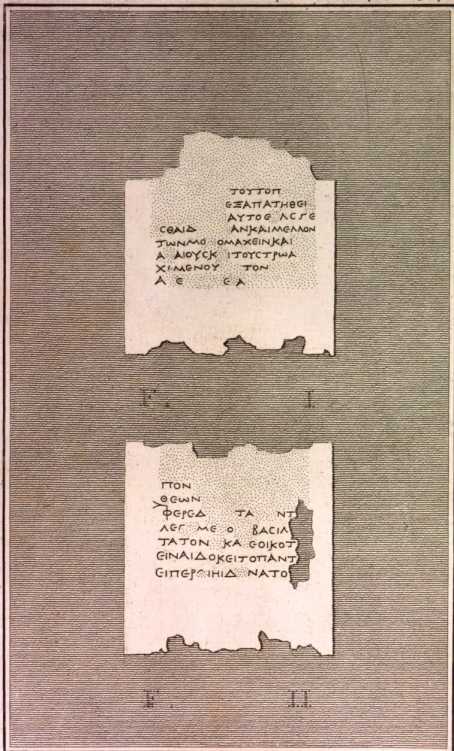 ΤΟΥΤΟΠ
ΕΞΑΠΑΤΗΘΕΙ
ΑΥΤΟϾ ΛϹΓΕ
ϹΘΑΙΔ ΑΝΚΑΙΜΕΛΛΟΝ
ΤΩΝΜΟ ΟΜΑΧΕΙΝΚΑΙ
Α ΑΙΟΥϹΚ ΙΤΟΥϹΤΡΩΑ
ΧΙΜΕΝΟΥ ΤΟΝ
Α Ε Ε Α
F. I.
ΠΟΝ
ΘΕΩΝ
ΦΕΡΕΔ ΤΑ ΝΤ
ΛΕΓ ΜΕ Ο ΒΑϹΙΛ
ΤΑΤΟΝ ΚΑ ΕΟΙΚΟΤ
ΕΙΝΑΙΔΟΚΕΙΤΟΠΑΝΤ
ΕΙΠΕΡ ΙΗΙΔ ΝΑΤΟ
F. II.